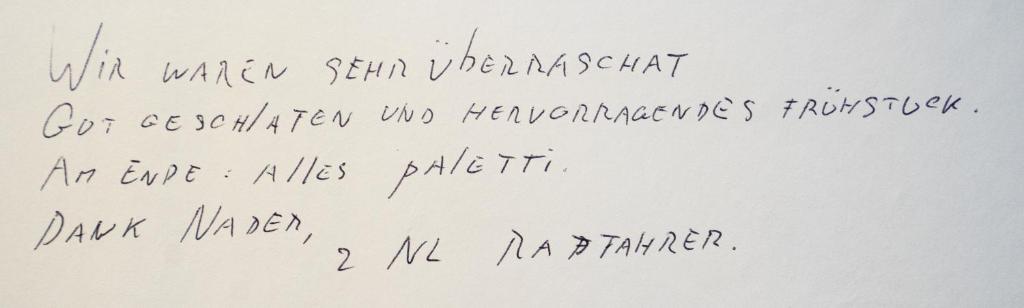 Wir waren sehr überraschat
Gut geschlaten und hervorragendes Frühstuck.
Am Ende: Alles paletti.
Dank Nader,
2 NL Radfahrer.